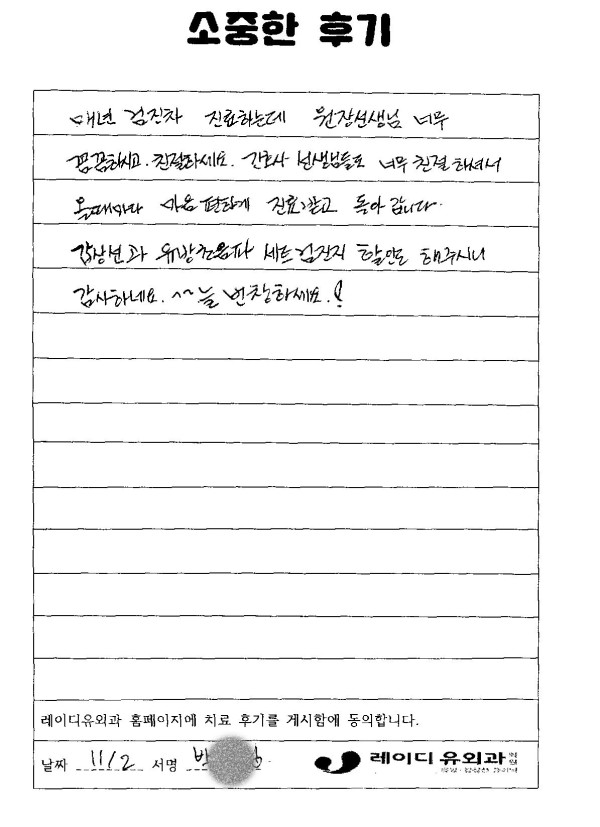 소중한 후기
매년 검진차 진료하는데 원장선생님 너무
꼼꼼하시고. 친절하세요. 간호사 선생님들도 너무 친절하셔서
올때마다 마음 편하게 진료받고 돌아갑니다.
갑상선과 유방초음파 세트검진시 할인도 해주시니
감사하네요. ^^ 늘 번창하세요.!
레이디유외과 홈페이지에 치료 후기를 게시함에 동의합니다.
날짜 11/2 서명 박 레이디 유외과 의원